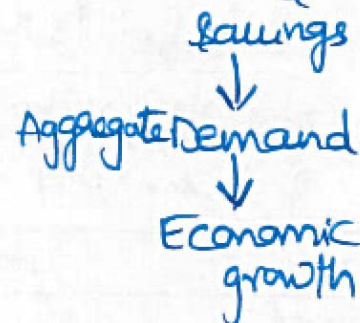 Savings
Aggregate Demand
Economic
growth